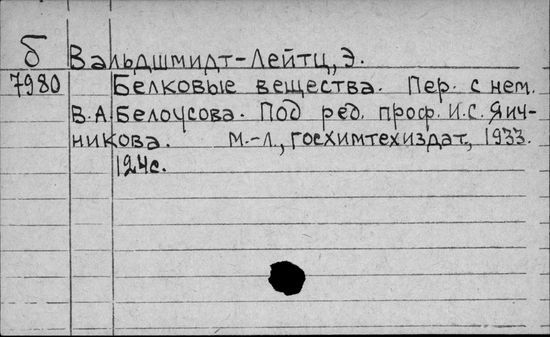 б Вальдшмидт-Лейтц, Э.
7980 Белковые вещества. Пер. с нем.
В.А Белоусова. Под ред. проф. И.С. Яич-
никова. М.-Л., Госхимтехиздат, 1933.
124с.